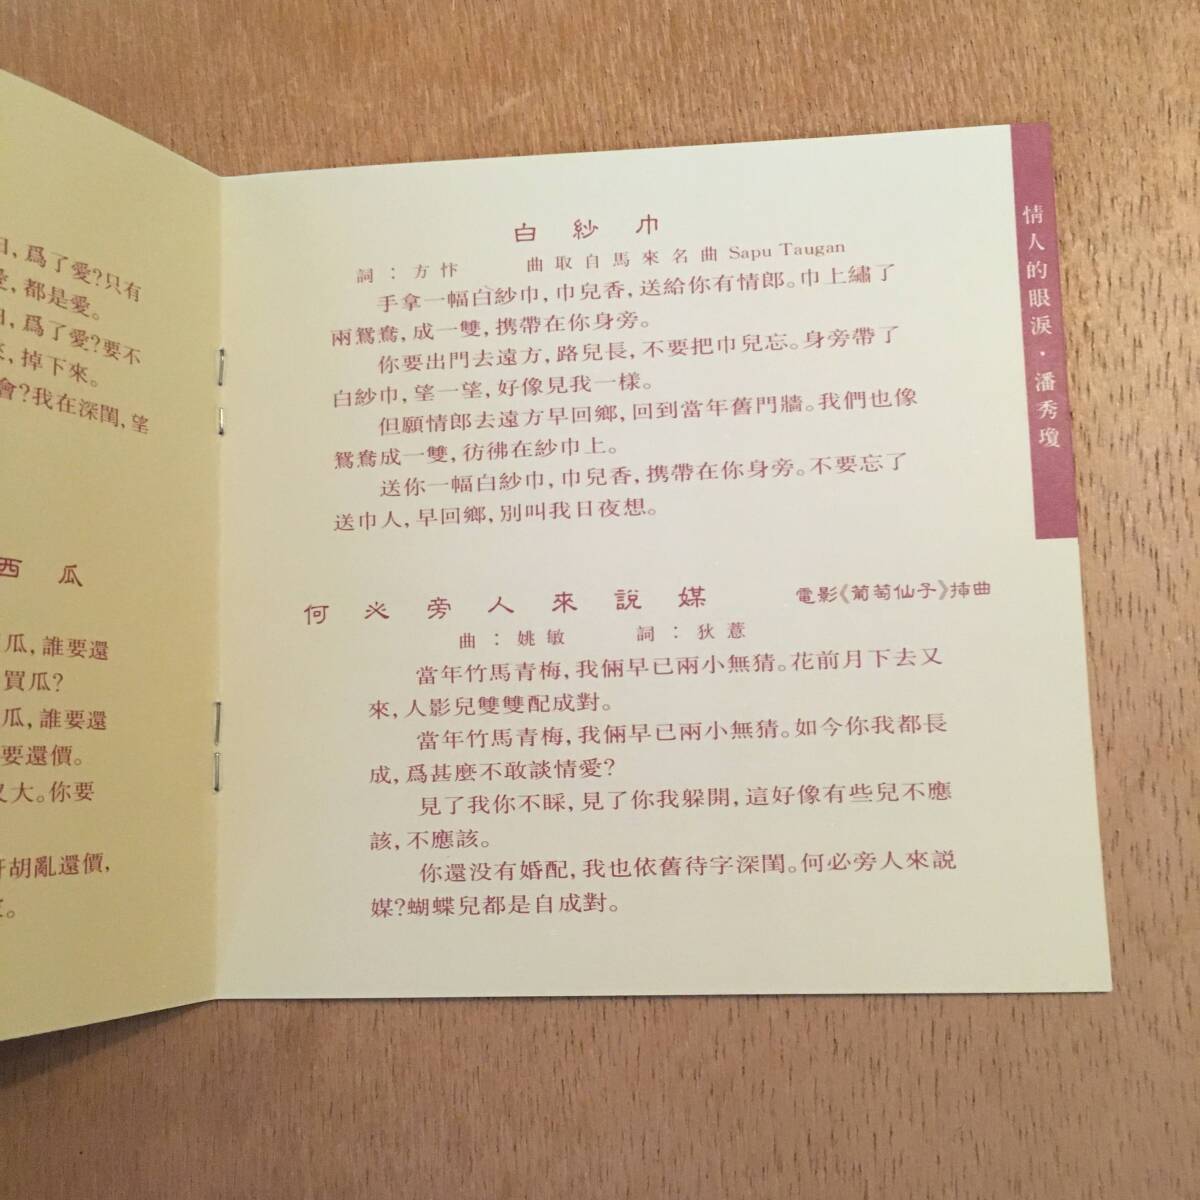 日，爲了愛？只有
愛，都是愛。
日，爲了愛？要不
來，掉下來。
會？我在深閨，望
西瓜
瓜，誰要還
買瓜？
瓜，誰要還
要還價。
又大。你要
胡亂還價，
白紗巾
詞：方忭　曲取自馬來名曲 Sapu Taugan
手拿一幅白紗巾，巾兒香，送給你有情郎。巾上繡了
兩鴛鴦，成一雙，携帶在你身旁。
你要出門去遠方，路兒長，不要把巾兒忘。身旁帶了
白紗巾，望一望，好像見我一樣。
但願情郎去遠方早回鄉，回到當年舊門牆。我們也像
鴛鴦成一雙，彷彿在紗巾上。
送你一幅白紗巾，巾兒香，携帶在你身旁。不要忘了
送巾人，早回鄉，別叫我日夜想。
何必旁人來說媒　電影《葡萄仙子》揷曲
曲：姚敏　詞：狄薏
當年竹馬青梅，我倆早已兩小無猜。花前月下去又
來，人影兒雙雙配成對。
當年竹馬青梅，我倆早已兩小無猜。如今你我都長
成，爲甚麼不敢談情愛？
見了我你不睬，見了你我躲開，這好像有些兒不應
該，不應該。
你還没有婚配，我也依舊待字深閨。何必旁人來説
媒？蝴蝶兒都是自成對。
情人的眼淚・潘秀瓊